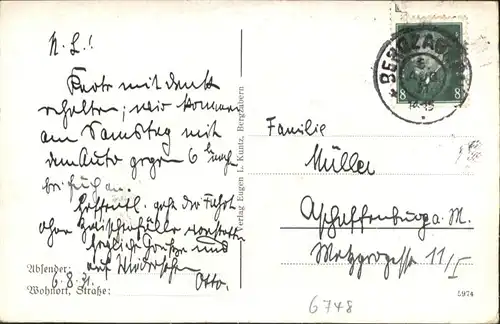 N. L.!
Karte mit Dank
erhalten; wir kommen
am Samstag mit
dem Auto gegen 6 Uhr nach
bei Euch an.
Hoffentl. geht die Fahrt
ohne Zwischenfälle vonstatten
Herzliche Grüße und
auf Wiedersehen
Otto.
6.8.31.
Absender:
Wohnort, Straße:
Verlag Eugen L. Kuntz, Bergzabern
BERGZABERN
8 8
Familie
Müller
Aschaffenburg a. M.
Metzgergasse 11/I
L974
6748